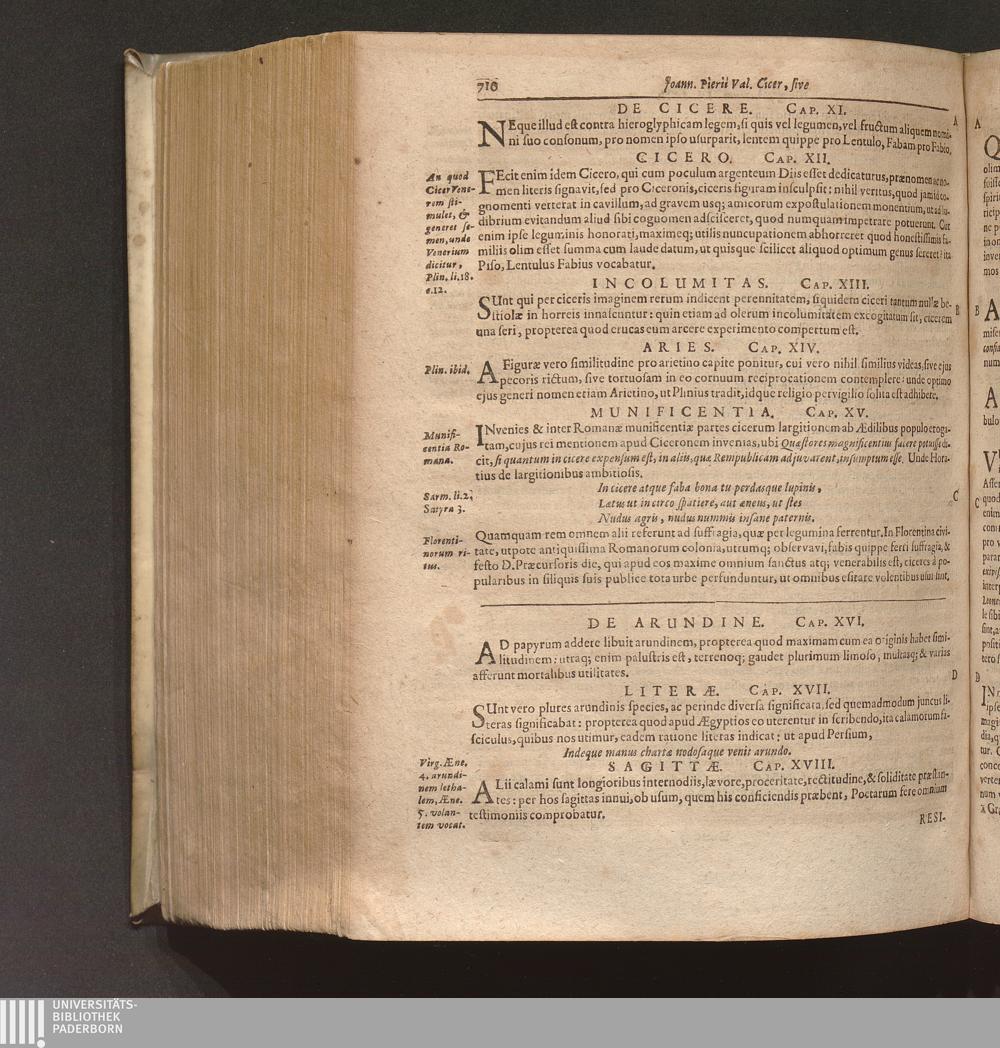 710 Joann. Pierii Val. Cicer, sive
DE CICERE. CAP. XI.
NEque illud est contra hieroglyphicam legem, si quis vel legumen, vel fructum aliquem nomi-
ni suo consonum, pro nomen ipso usurparit, lentem quippe pro Lentulo, Fabam pro Fabio.
CICERO. CAP. XII.
FEcit enim idem Cicero, qui cum poculum argenteum Diis esset dedicaturus, prænomen ac no-
men literis signavit, sed pro Ciceronis, ciceris figuram insculpsit: nihil veritus, quod jam id co-
gnomenti verterat in cavillum, ad gravem usq; amicorum expostulationem monentium, ut ad lu-
dibrium evitandum aliud sibi cognomen adscisceret, quod numquam impetrare potuerunt. Cur
enim ipse leguminis honorati, maximeq; utilis nuncupationem abhorreret quod honestissimis fa-
miliis olim esset summa cum laude datum, ut quisque scilicet aliquod optimum genus sereret? ita
Piso, Lentulus Fabius vocabatur.
An quod
Cicer Vene-
rem sti-
mulet, &
generet se-
men, unde
Venerium
dicitur,
Plin. li. 18.
c. 12.
INCOLUMITAS. CAP. XIII.
SUnt qui per ciceris imaginem rerum indicent perennitatem, siquidem ciceri tantum nullæ be-
stiolæ in horreis innascuntur: quin etiam ad olerum incolumitatem excogitatum sit, cicerem
una seri, propterea quod erucas eum arcere experimento compertum est.
ARIES. CAP. XIV.
Plin. ibid.
A Figuræ vero similitudine pro arietino capite ponitur, cui vero nihil similius videas, sive ejus
pecoris rictum, sive tortuosam in eo cornuum reciprocationem contemplere: unde optimo
ejus generi nomen etiam Arietino, ut Plinius tradit, idque religio pervigilio solita est adhibere.
MUNIFICENTIA. CAP. XV.
Munifi-
centia Ro-
mana.
INvenies & inter Romanæ munificentiæ partes cicerum largitionem ab Ædilibus populo eroga-
tam, cujus rei mentionem apud Ciceronem invenias, ubi Quæstores magnificentius facere potuisse di-
cit, si quantum in cicere expensum est, in aliis, quæ Rempublicam adjuvarent, insumptum esse. Unde Hora-
tius de largitionibus ambitiosis.
Sarm. li. 2,
Satyra 3.
In cicere atque faba bona tu perdasque lupinis,
Latus ut in circo spatiere, aut æneus, ut stes
Nudus agris, nudus nummis insane paternis.
Florenti-
norum ri-
tus.
Quamquam rem omnem alii referunt ad suffragia, quæ per legumina ferrentur. In Florentina civi-
tate, utpote antiquissima Romanorum colonia, utrumq; observavi, fabis quippe ferri suffragia, &
festo D. Præcursoris die, qui apud eos maxime omnium sanctus atq; venerabilis est, ciceres à po-
pularibus in siliquis suis publice tota urbe perfunduntur, ut omnibus esitare volentibus usui sint.
DE ARUNDINE. CAP. XVI.
AD papyrum addere libuit arundinem, propterea quod maximam cum ea originis habet simi-
litudinem: utraq; enim palustris est, terrenoq; gaudet plurimum limoso, multasq; & varias
afferunt mortalibus utilitates.
LITERÆ. CAP. XVII.
SUnt vero plures arundinis species, ac perinde diversa significata, sed quemadmodum juncus li-
teras significabat: propterea quod apud Ægyptios eo uterentur in scribendo, ita calamorum fa-
sciculus, quibus nos utimur, eadem ratione literas indicat: ut apud Persium,
Indeque manus chartæ nodosaque venit arundo.
SAGITTÆ. CAP. XVIII.
Virg. Æne.
4. arundi-
nem letha-
lem, Æne.
5. volan-
tem vocat.
ALii calami sunt longioribus internodiis, lævore, proceritate, rectitudine, & soliditate præstan-
tes: per hos sagittas innui, ob usum, quem his conficiendis præbent, Poetarum fere omnium
testimoniis comprobatur.
RESI-
A
B
C
D
UNIVERSITÄTS-
BIBLIOTHEK
PADERBORN